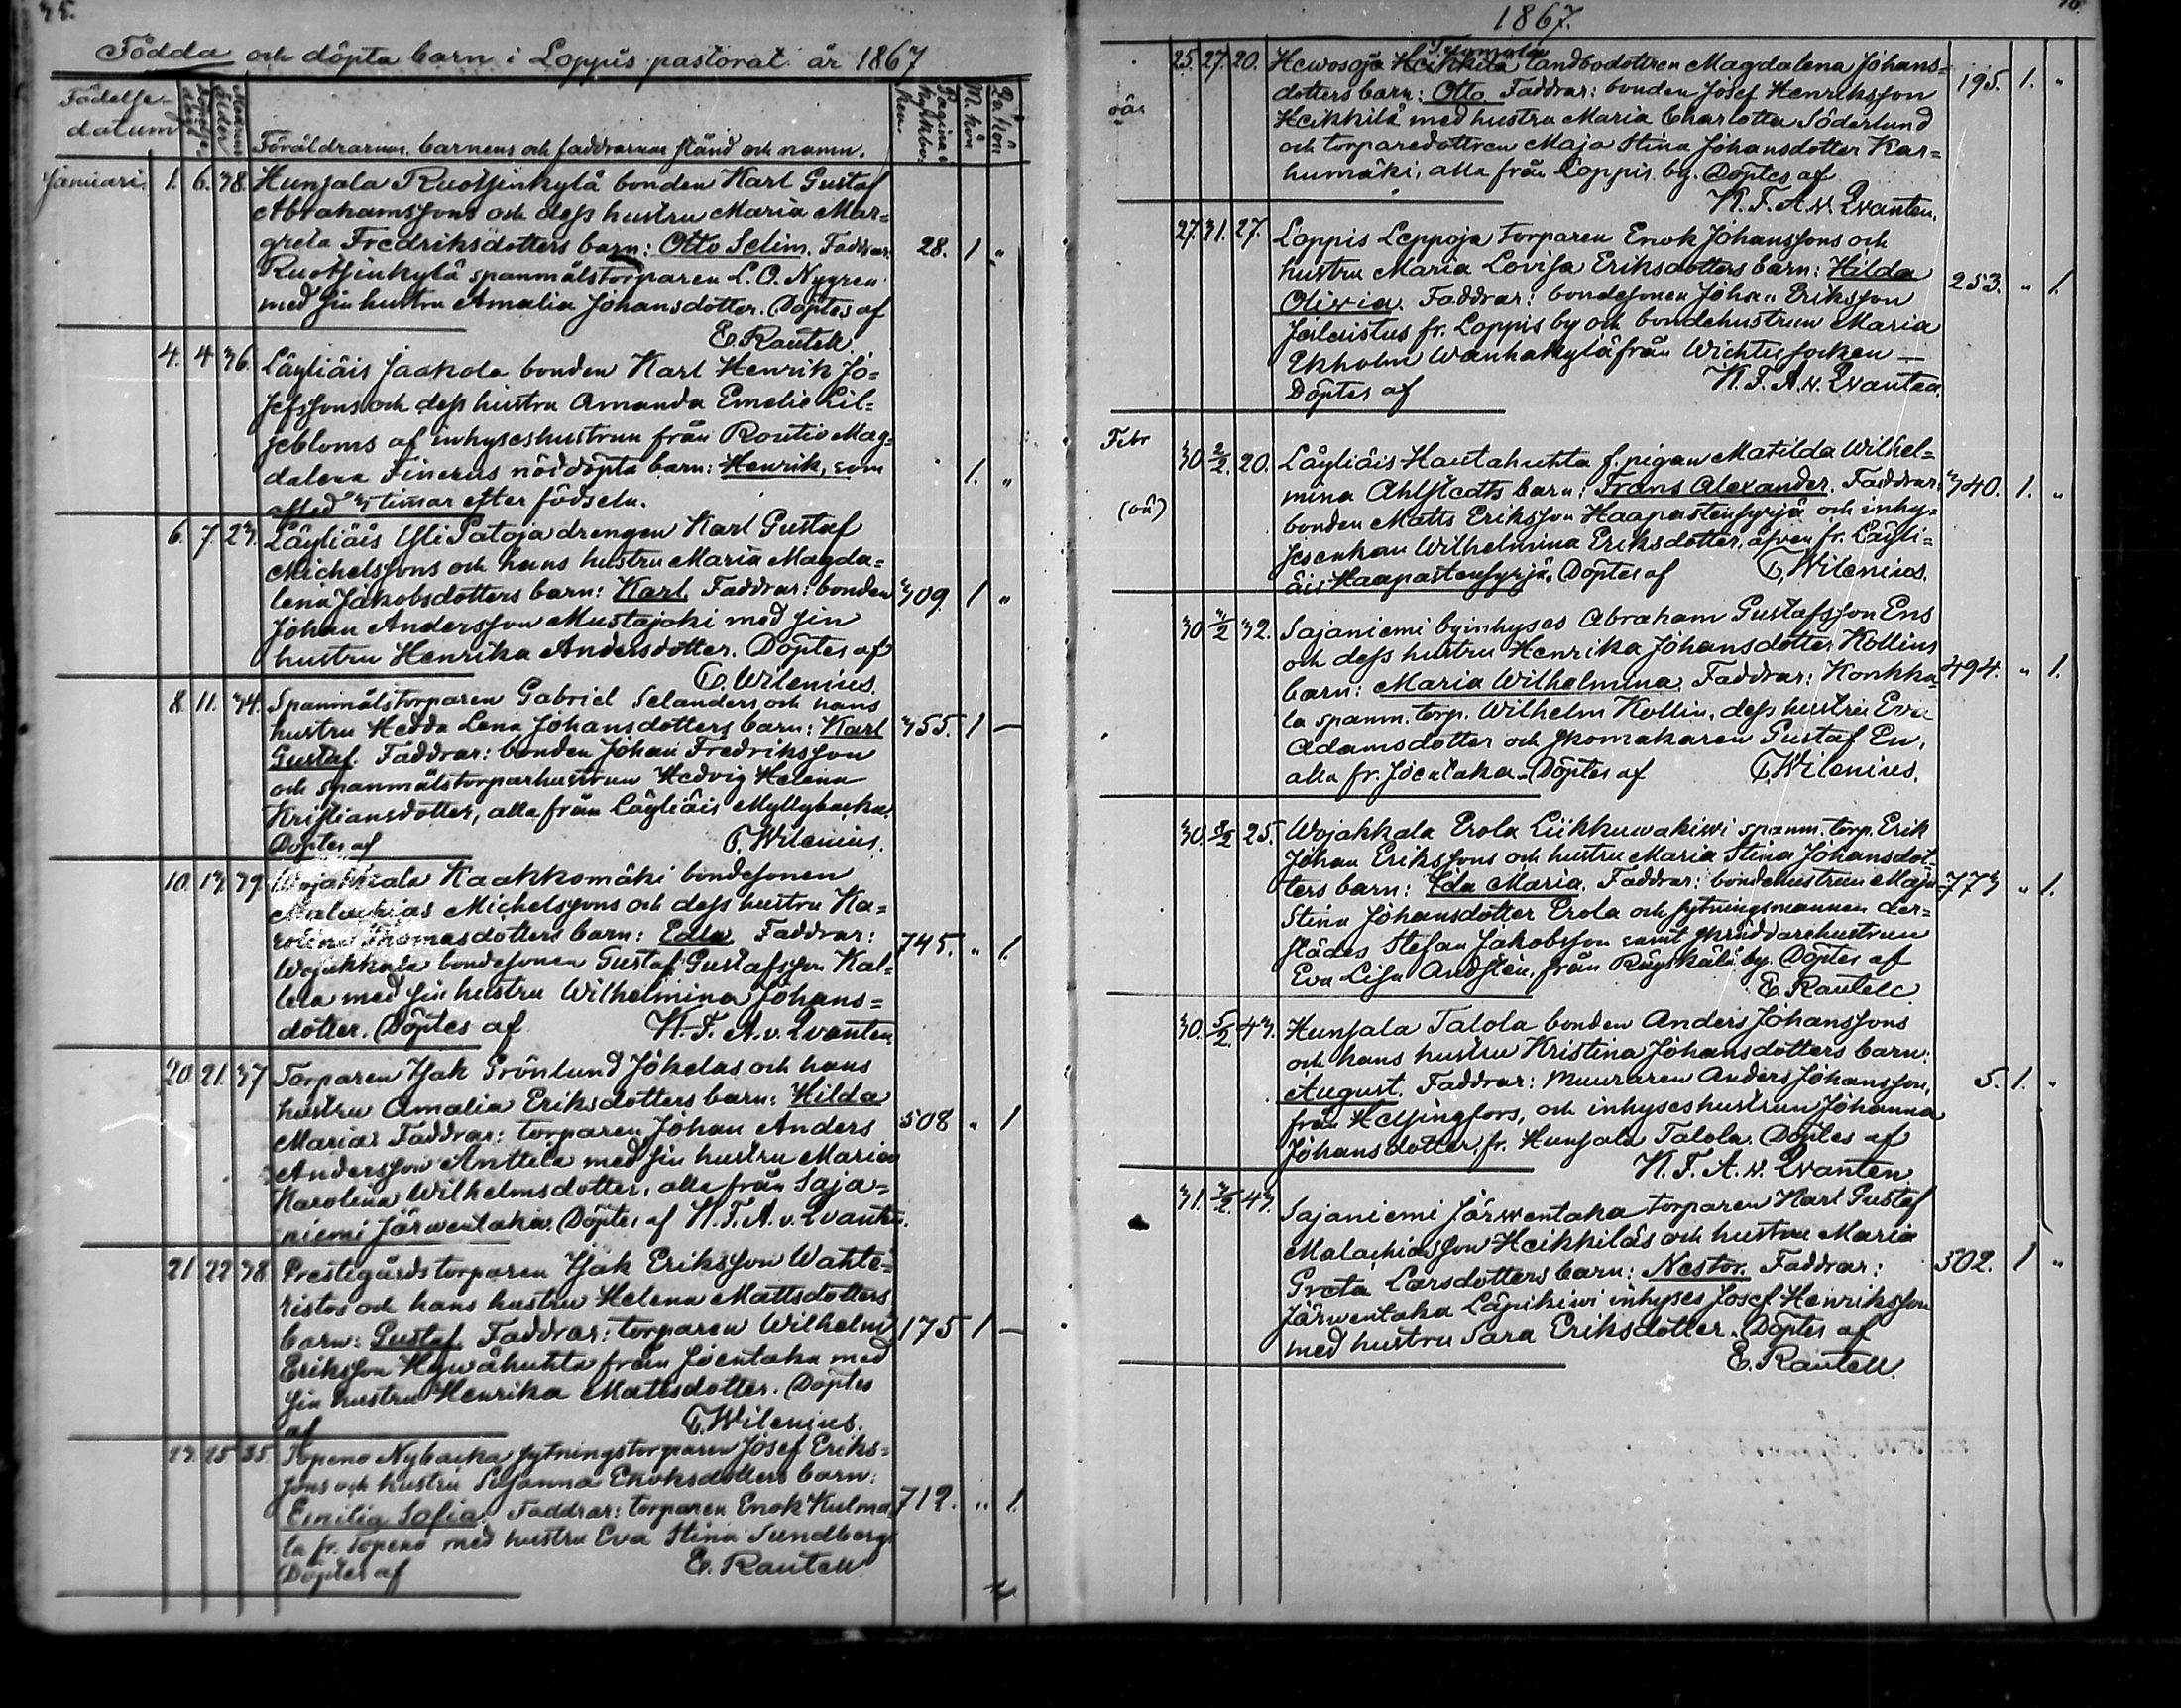 35.
Födda och döpta barn i Loppis pastorat år 1867
Födelse-
datum
Föräldrarnas, barnens och faddrarnas stånd och namn.
Pagina i
kyrkbo-
ken.
M. kön
Januari. 1. 6. 38. Hunsala Ruotsinkylä bonden Karl Gustaf
Abrahamssons och dess hustru Maria Mar=
greta Fredriksdotters barn: Otto Selim. Faddrar: 28. 1 "
Ruotsinkylä spanmålstorparen L. O. Nygren
med sin hustru Amalia Johansdotter. Döptes af
E. Rautell.
4. 4 36. Läyliäis Jaakola bonden Karl Henrik Jo=
sefssons och dess hustru Amanda Emelie Lil=
jebloms af inhyseshustrun från Routio Mag=
dalena Finerus nöddöpta barn: Henrik, som 1. "
afled 3 timar efter födseln.
6. 7. 23. Läyliäis Yli Patoja drengen Karl Gustaf
Michelssons och hans hustru Maria Magda=
lena Jakobsdotters barn: Karl. Faddrar: bonden 309. 1 "
Johan Andersson Mustajoki med sin
hustru Henrika Andersdotter. Döptes af
T. Wilenius.
8. 11. 34. Spanmålstorparen Gabriel Selanders och hans
hustru Hedda Lena Johansdotters barn: Karl 355. 1 —
Gustaf. Faddrar: bonden Johan Fredriksson
och spanmålstorparhustrun Hedvig Helena
Kristiansdotter, alla från Läyliäis Myllybacka.
Döptes af T. Wilenius.
10. 13. 39. Wojakkala Kaakkomäki bondesonen
Malachias Michelssons och dess hustru Ka=
rolina Thomasdotters barn: Edla. Faddrar: 745. " 1.
Wojakkala bondesonen Gustaf Gustafsson Kal=
lela med sin hustru Wilhelmina Johans=
dotter. Döptes af K. F. A. v. Qvanten
20. 21. 37 Torparen Isak Grönlund Jokelas och hans
hustru Amalia Eriksdotters barn: Hilda
Maria. Faddrar: torparen Johan Anders 508 " 1
Andersson Anttila med sin hustru Maria
Karolina Wilhelmsdotter, alla från Saja=
niemi Järwentaka. Döptes af K. F. A. v. Qvanten.
21. 22 38. Prestegårdstorparen Isak Eriksson Wahte=
ristos och hans hustru Helena Mattsdotters
barn: Gustaf. Faddrar: torparen Wilhelm 175 1 —
Eriksson Hywähuhta från Joentaka med
sin hustru Henrika Mattsdotter. Döptes
af T. Wilenius.
23. 25 35. Topeno Nybacka sytningstorparen Josef Eriks=
sons och hustru Susanna Enoksdotters barn:
Emilia Sofia. Faddrar: torparen Enok Kulma 712. " 1.
la fr. Topeno med hustru Eva Stina Sundberg.
Döptes af E. Rautell
1867.
Tuomola
25. 27. 20. Hewosoja Heikkilä landbodottren Magdalena Johans=
dotters barn: Otto. Faddrar: bonden Josef Henriksson 195. 1. "
oä.
Heikkilä med hustru Maria Charlotta Söderlund
och torparedottren Maja Stina Johansdotter Kar=
humäki, alla från Loppis by. Döptes af
K. F. A. v. Qvanten.
27. 31. 27. Loppis Leppoja torparen Enok Johanssons och
hustru Maria Lovisa Eriksdotters barn: Hilda
Olivia. Faddrar: bondesonen Johan Eriksson 253. " 1.
fr. Loppis by och bondehustrun Maria
Ekholm Wanhakylä från Wichtis socken —
Döptes af K. F. A. v. Qvanten.
Febr
30 2/2. 20. Läyliäis Hautahuhta f. pigan Matilda Wilhel=
mina Ahlstedts barn: Frans Alexander. Faddrar: 340. 1. "
(oä)
bonden Matts Eriksson Haapastensyrjä och inhy=
sesenkan Wilhelmina Eriksdotter, äfven fr. Läyli=
äis Haapastensyrjä. Döptes af T. Wilenius.
30 3/2 32. Sajaniemi byinhyses Abraham Gustafsson Ens
och dess hustru Henrika Johansdotter Kollins
barn: Maria Wilhelmina. Faddrar: Konkka= 494. " 1.
la spanm. torp. Wilhelm Kollin, dess hustru Eva
Adamsdotter och skomakaren Gustaf En,
alla fr. Joentaka. Döptes af T. Wilenius.
30. 8/2 25. Wojakkala Erola Liikkuwakiwi spanm. torp. Erik
Johan Erikssons och hustru Maria Stina Johansdot=
ters barn: Ida Maria. Faddrar: bondehustrun Maja 773 " 1.
Stina Johansdotter Erola och sytningsmannen der=
städes Stefan Jakobsson samt skräddarehustrun
Eva Lisa Andstén, från Räyskälä by. Döptes af
E. Rautell.
30. 5/2. 43. Hunsala Talola bonden Anders Johanssons
och hans hustru Kristina Johansdotters barn:
August. Faddrar: Muuraren Anders Johansson, 5. 1. "
från Helsingfors, och inhyseshustrun Johanna
Johansdotter, fr. Hunsala Talola. Döptes af
K. F. A. v. Qvanten.
31. 3/2. 43. Sajaniemi Järwentaka torparen Karl Gustaf
Malachiasson Heikkiläs och hustru Maria
Greta Larsdotters barn: Nestor. Faddrar: 502. 1 "
Järwentaka Läpikiwi inhyses Josef Henriksson
med hustru Sara Eriksdotter. Döptes af
E. Rautell.